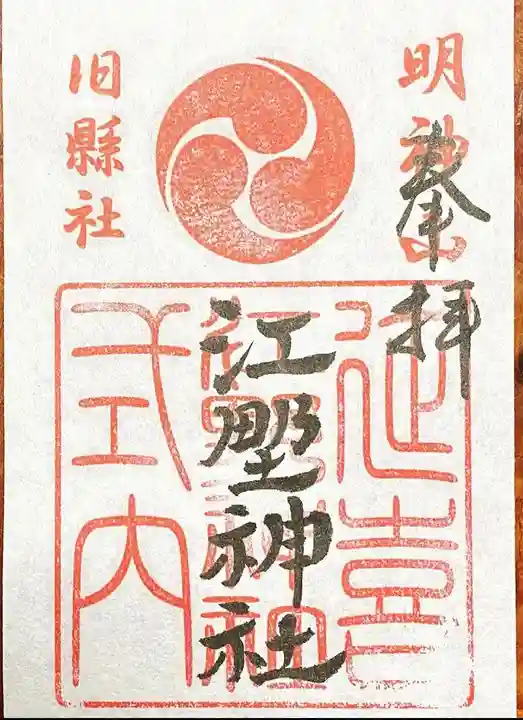 明神山
奉拝
延喜
江野神社
江野神社
式内
旧縣社